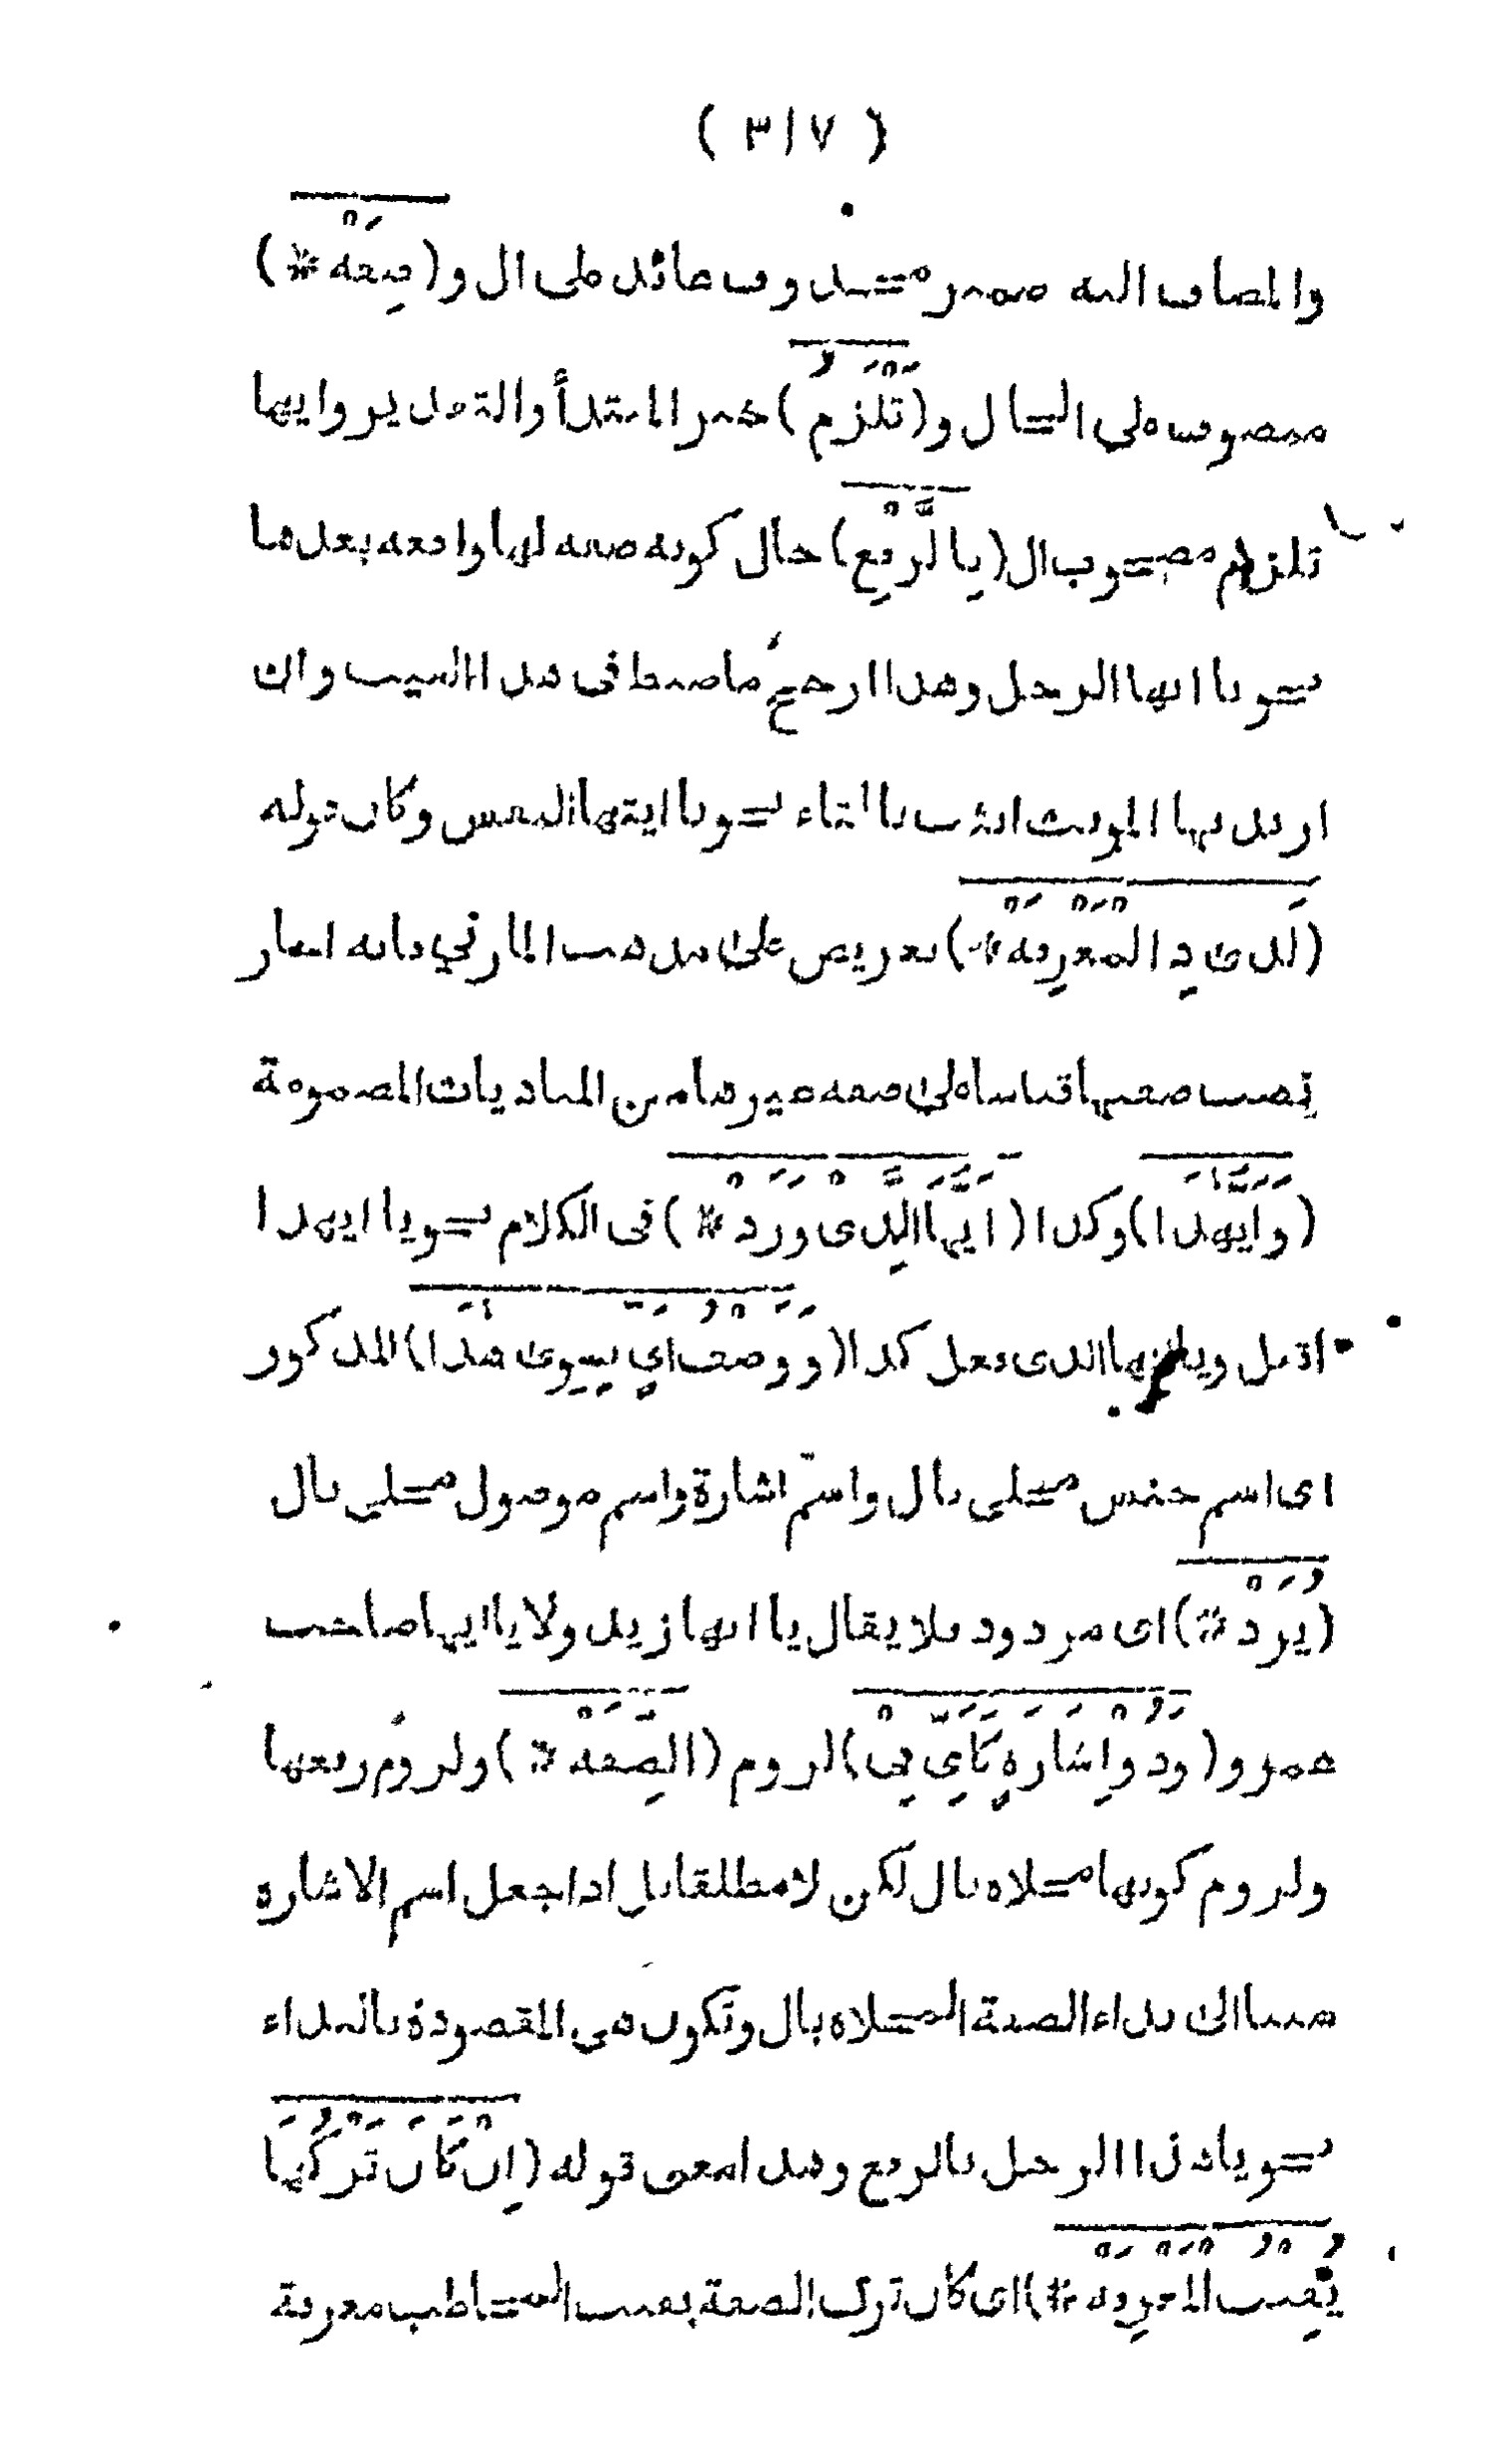 ( ٣١٧ )
والمضاف اليه ضمير محذوف عائد على ال و(صِفَهْ *)
منصوب على الحال و(تَلْزَمُ) خبر المبتدأ والتقدير وايها
تلزم مصحوب ال (بِالرَّفْعِ) حال كونه صفه لها واقعه بعدها
نحو يا ايها الرجل وهذا ارجح ما ضبط فى هذا البيت وان
اريد بها المونث انثت بالتاء نحو يا ايتها النفس وكان قوله
(لَدى ذِى الْمَعْرِفَهْ *) تعريض على مذهب المازني فانه اجاز
نصب صفتها قياسا على صفه غيرها من المناديات المضمومة
(وَأَيُّهَذَا) وكذا (أَيُّهَا الَّذِىْ وَرَدْ *) فى الكلام نحو يا ايهذا
اقبل ويا ايها الذى فعل كذا (وَوَصْفُ أَيٍّ بِسِوَى هَذَا) المذكور
اى اسم جنس محلى بال واسم اشارة واسم موصول محلى بال
(يُرَدْ *) اى مردود فلا يقال يا ايها زيد ولا يا ايها صاحب
عمرو (وَذُوْ إِشَارَةٍ كَأَيٍّ فِىْ) لزوم (الصِّفَهْ *) ولزوم رفعها
ولزوم كونها محلاه بال لكن لا مطلقا بل اذا جعل اسم الاشاره
سببا الى نداء الصفة المحلاه بال وتكون هى المقصودة بالنداء
نحو يا هذا الرجل بالرفع وهذا معنى قوله (إِنْ كَانَ تَرْكُهَا
يُفِيْتُ الْمَعْرِفَهْ *) اى كان ترك الصفة يفيت المخاطب معرفة